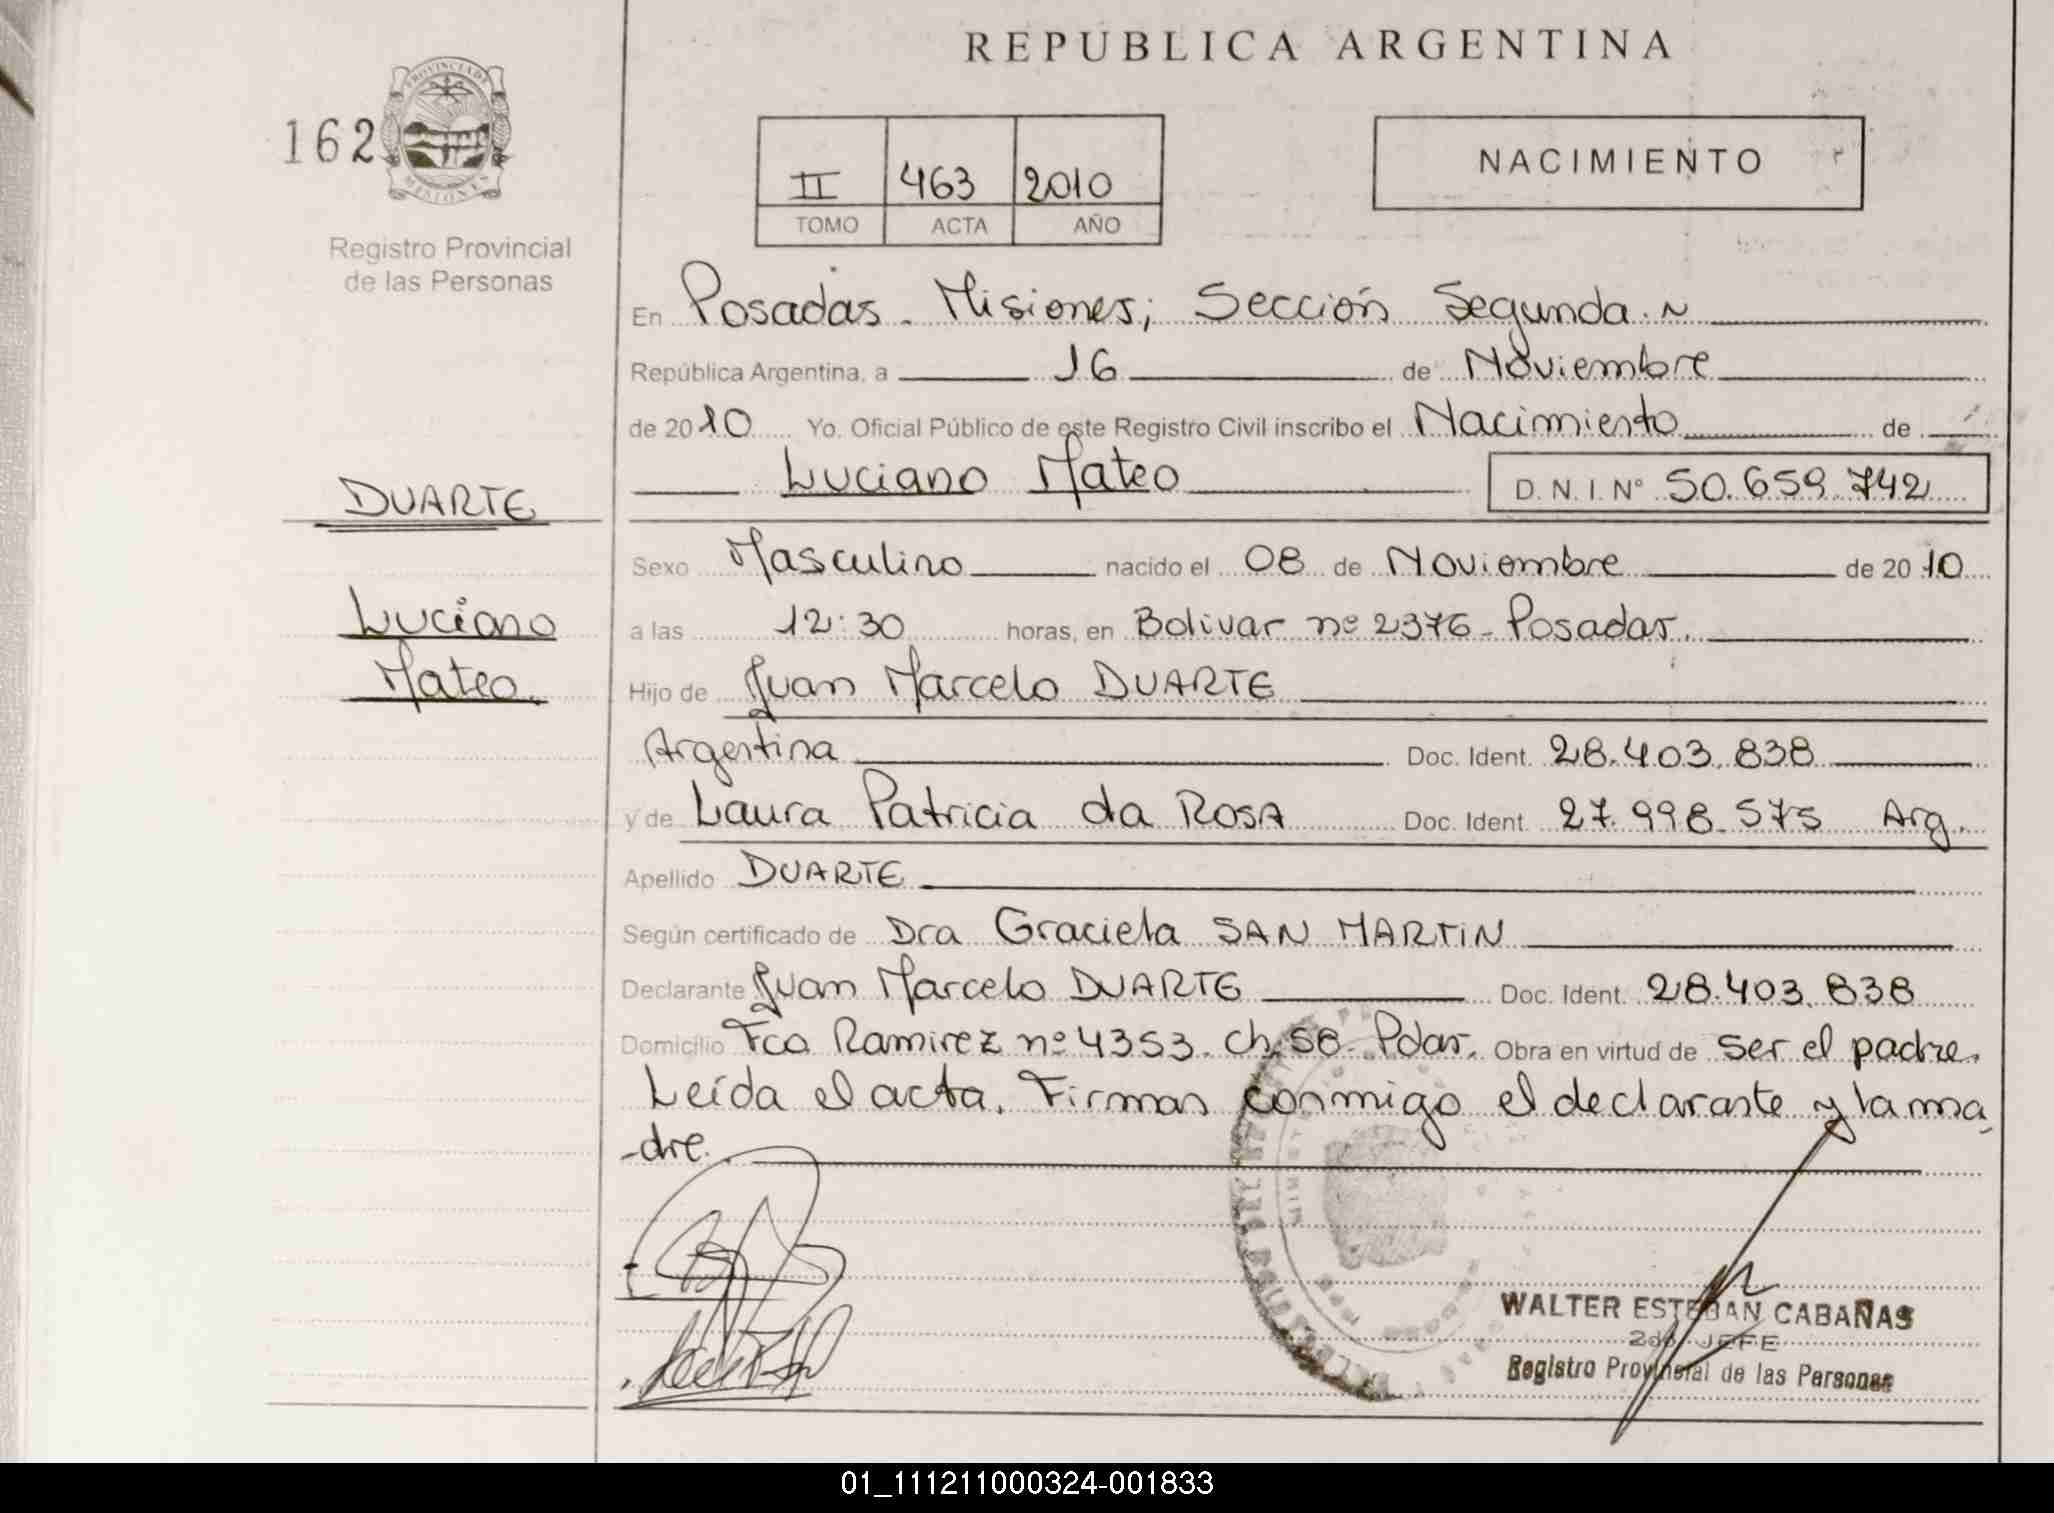 REPUBLICA ARGENTINA
162
PROVINCIA DE
MISIONES
Registro Provincial
de las Personas
II 463 2010
TOMO ACTA AÑO
NACIMIENTO
En Posadas. Misiones; Sección Segunda.
República Argentina, a 16 de Noviembre
de 2010 Yo. Oficial Público de este Registro Civil inscribo el Nacimiento de
Luciano Mateo D.N.I. N° 50.659.742
DUARTE
Luciano
Mateo.
Sexo Masculino nacido el 08 de Noviembre de 2010
a las 12:30 horas, en Bolivar nº 2376 - Posadas.
Hijo de Juan Marcelo DUARTE
Argentina Doc. Ident. 28.403.838
y de Laura Patricia da ROSA Doc. Ident. 27.998.575 Arg.
Apellido DUARTE
Según certificado de Dra Graciela SAN MARTIN
Declarante Juan Marcelo DUARTE Doc. Ident. 28.403.838
Domicilio Fco Ramirez nº 4353. Ch. 58. Pdas. Obra en virtud de ser el padre.
Leída el acta. Firman conmigo el declarante y la ma
-dre.
WALTER ESTEBAN CABAÑAS
2do JEFE
Registro Provincial de las Personas
01_111211000324-001833